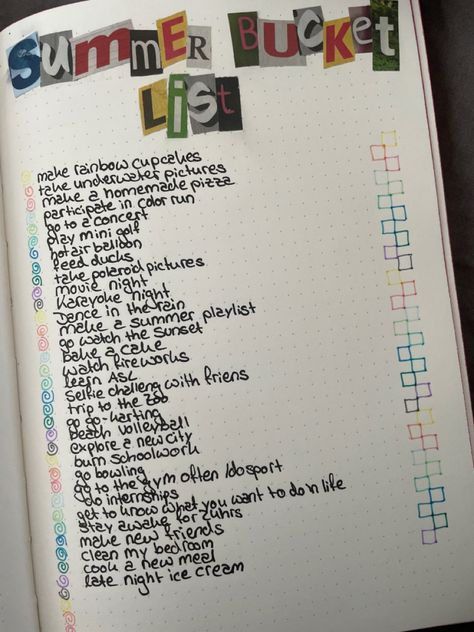 SummER BUCKEt
List
make rainbow cupcakes
take underwater pictures
make a homemade pizza
participate in color run
go to a concert
play mini golf
hot air balloon
feed ducks
take polaroid pictures
movie night
karayoke night
Dance in the rain
make a summer playlist
go watch the sunset
bake a cake
watch fireworks
learn ASL
Selfie challeng with friens
trip to the zoo
go go-karting
beach volleyball
explore a new city
burn schoolwork
go bowling
go to the gym often /do sport
do internships
get to know what you want to do'n life
stay awake for 24hrs
make new friends
clean my bedroom
cook a new meal
late night ice cream